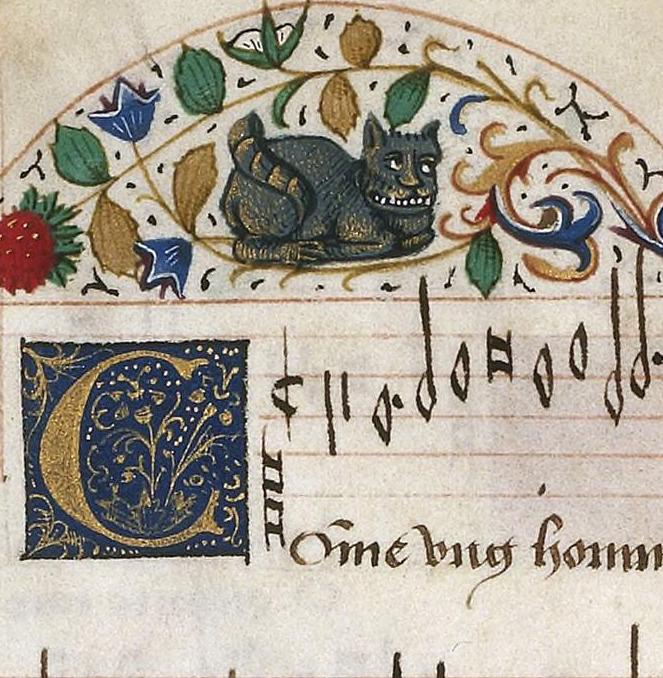 C
Om̃e vng homm